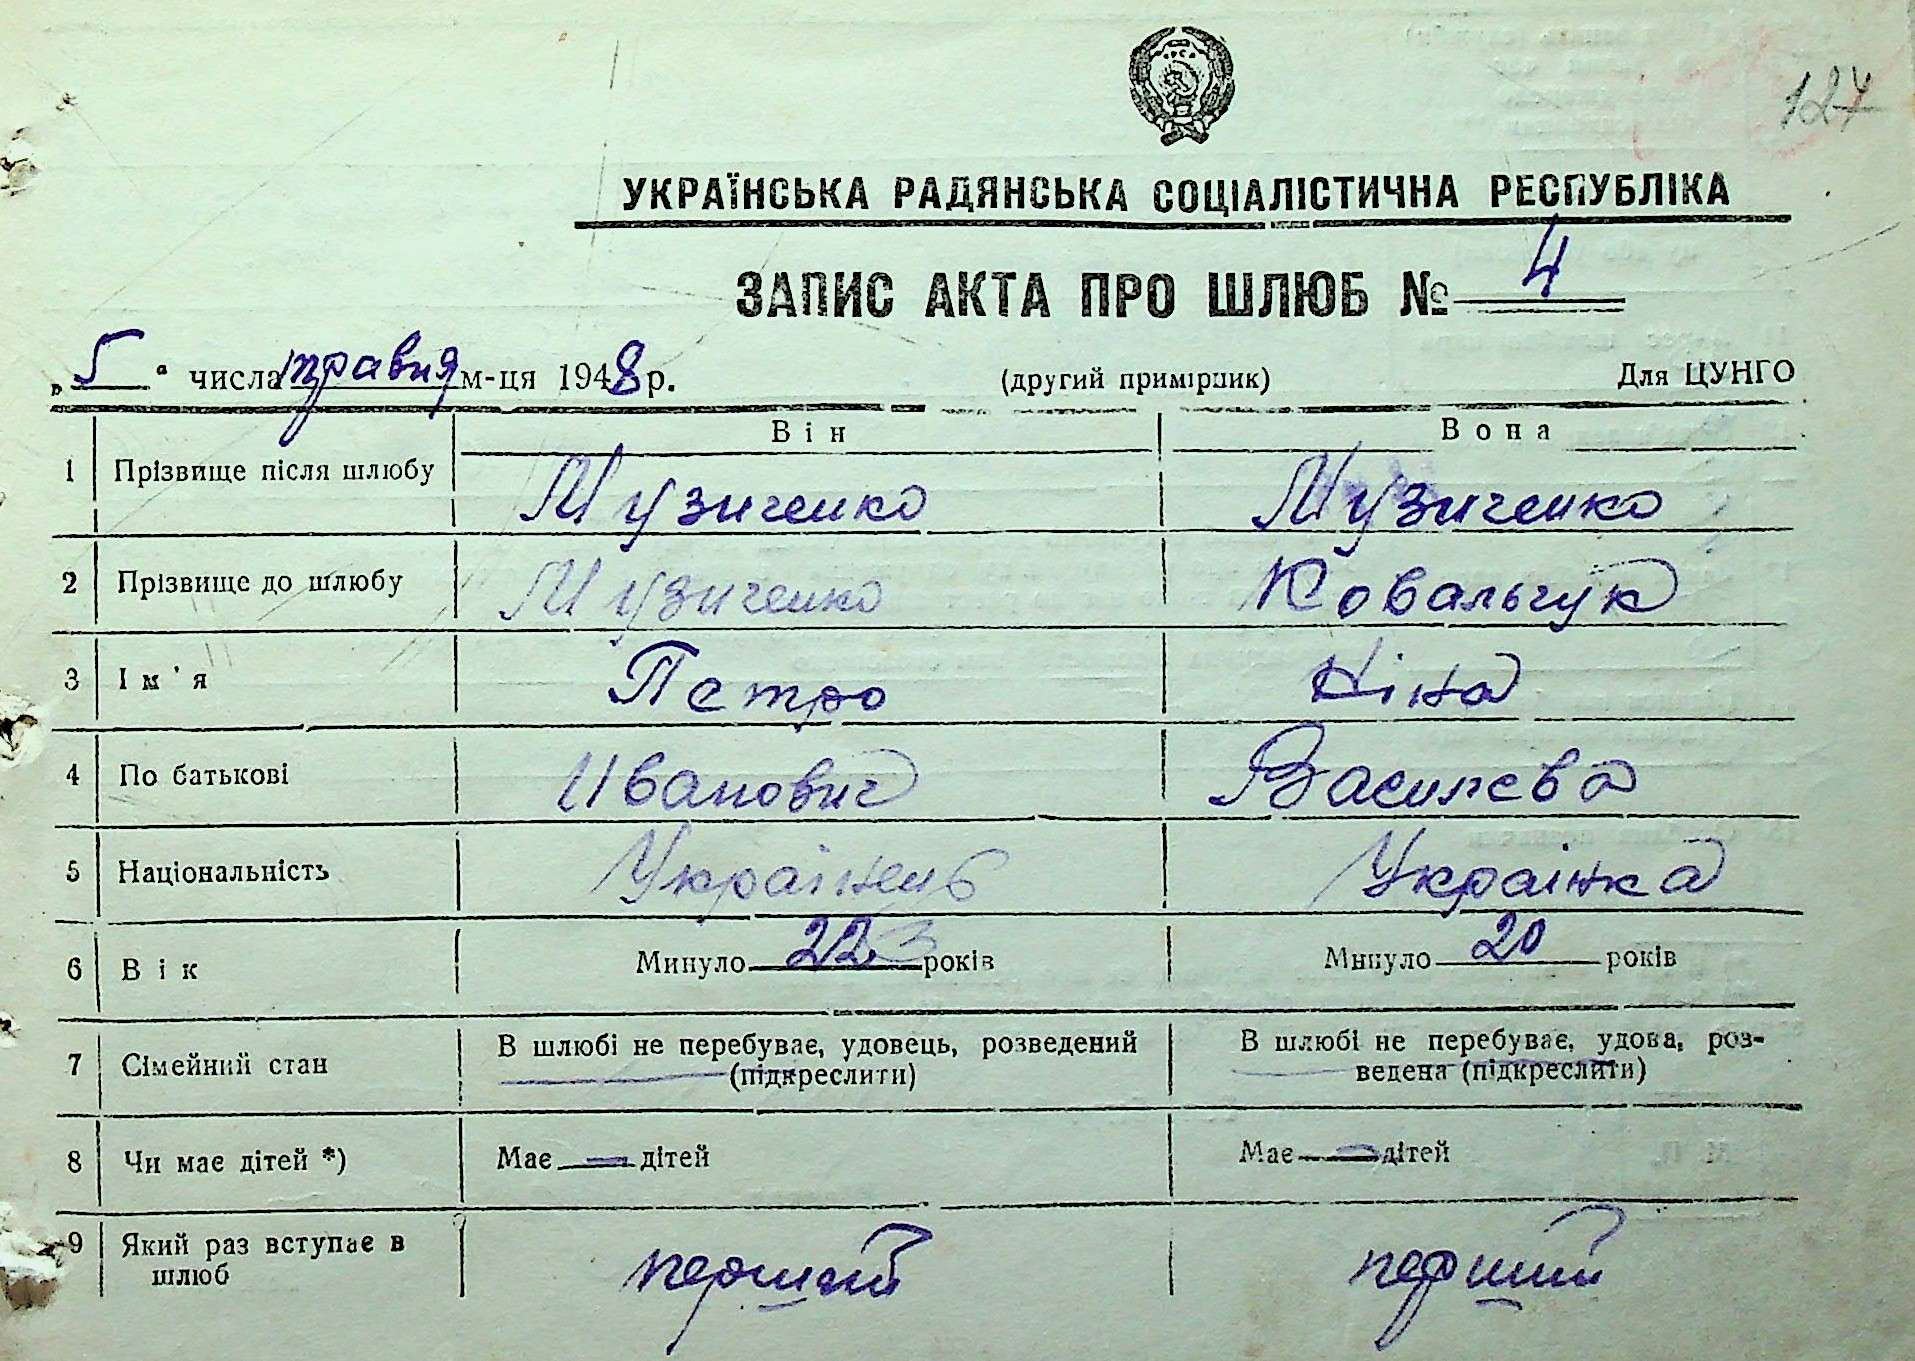 127
УКРАЇНСЬКА РАДЯНСЬКА СОЦІАЛІСТИЧНА РЕСПУБЛІКА
ЗАПИС АКТА ПРО ШЛЮБ № 4
„5“ числа травня м-ця 1948 р. (другий примірник) Для ЦУНГО
Він Вона
1 Прізвище після шлюбу Музиченко Музиченко
2 Прізвище до шлюбу Музиченко Ковальчук
3 Ім'я Петро Ніна
4 По батькові Иванович Василєва
5 Національність Українець Українка
6 Вік Минуло 22 років Минуло 20 років
7 Сімейний стан В шлюбі не перебуває, удовець, розведений В шлюбі не перебуває, удова, роз-
(підкреслити) ведена (підкреслити)
8 Чи має дітей *) Має — дітей Має — дітей
9 Який раз вступає в перший перший
шлюб